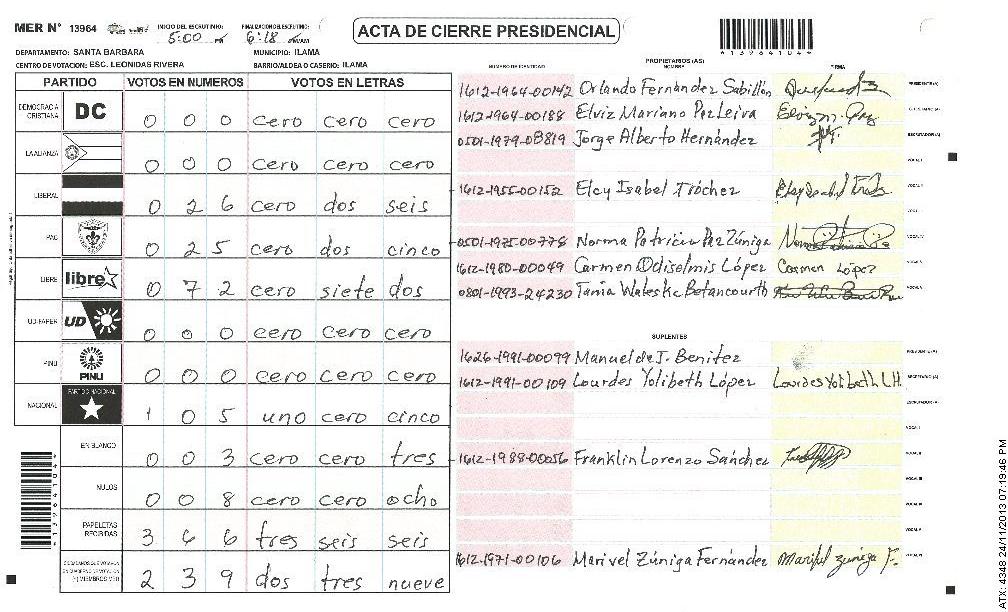 MER N° 13964
INICIO DEL ESCRUTINIO: 5:00 PM
FINALIZACION ESCRUTINIO: 6:18
ACTA DE CIERRE PRESIDENCIAL
*1396410 4*
DEPARTAMENTO: SANTA BARBARA MUNICIPIO: ILAMA
CENTRO DE VOTACION: ESC. LEONIDAS RIVERA BARRIO/ALDEA O CASERIO: ILAMA
PARTIDO VOTOS EN NUMEROS VOTOS EN LETRAS
DEMOCRACIA CRISTIANA DC 0 0 0 cero cero cero
LA ALIANZA 0 0 0 cero cero cero
LIBERAL 0 2 6 cero dos seis
PAC 0 2 5 cero dos cinco
LIBRE libre 0 7 2 cero siete dos
UD-FAPER UD 0 0 0 cero cero cero
PINU PINU 0 0 0 cero cero cero
NACIONAL PARTIDO NACIONAL 1 0 5 uno cero cinco
EN BLANCO 0 0 3 cero cero tres
NULOS 0 0 8 cero cero ocho
PAPELETAS RECIBIDAS 3 6 6 tres seis seis
2 3 9 dos tres nueve
PROPIETARIOS (AS)
NUMERO DE IDENTIDAD NOMBRE FIRMA
1612-1964-00142 Orlando Fernandez Sabillón PRESIDENTE(A)
1612-1964-00188 Elviz Mariano Paz Leiva
0501-1979-08819 Jorge Alberto Hernández ESCRUTADOR(A)
VOCAL I
1612-1955-00152 Elcy Isabel Tróchez VOCAL II
0501-1975-00778 Norma Patricia Paz Zúniga VOCAL IV
1612-1980-00049 Carmen Odiselmis López Carmen López VOCAL V
0801-1993-24230 Tania Wateska Betancourth
SUPLENTES
1626-1991-00099 Manuel de J. Benitez PRESIDENTE(A)
1612-1991-00109 Lourdes Yolibeth López Lourdes Yolibeth L.H. SECRETARIO(A)
ESCRUTADOR(A)
VOCAL I
1612-1988-00056 Franklin Lorenzo Sánchez VOCAL II
VOCAL III
VOCAL IV
VOCAL V
1612-1971-00106 Marivel Zúniga Fernández VOCAL VI
ATX: 4348 24/11/2013 07:19:46 PM